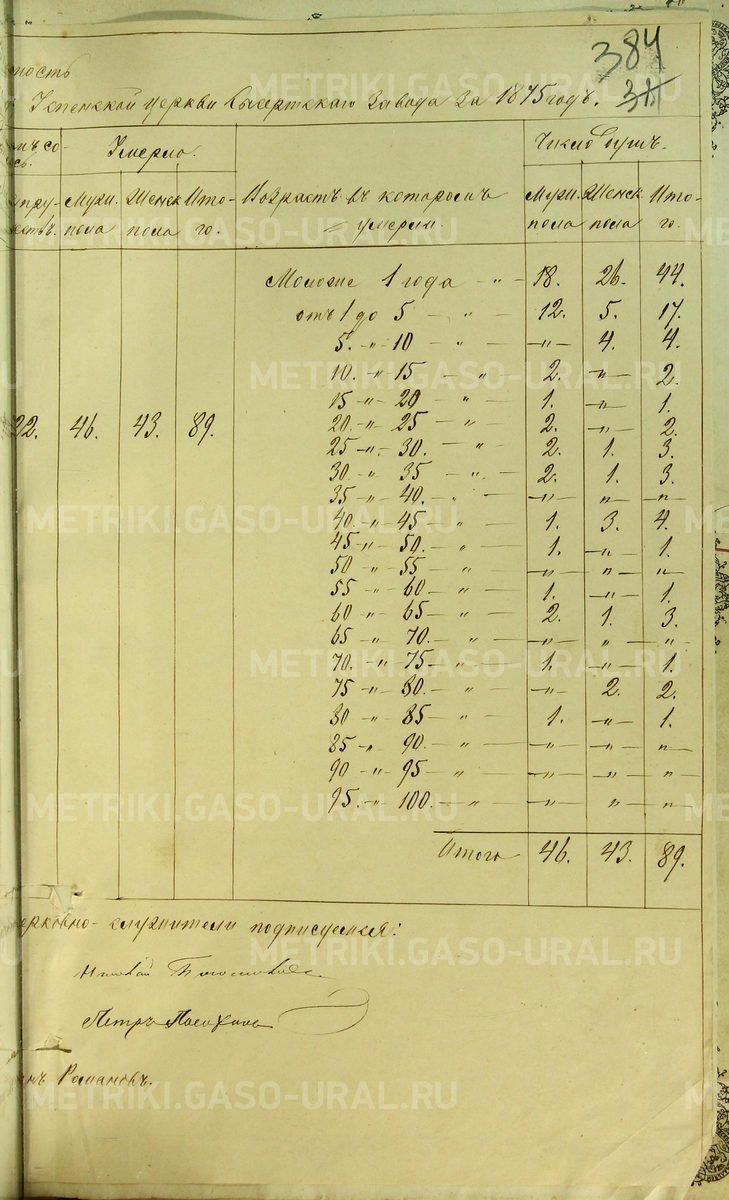 384
ность
Успенской церкви Сысертскаго завода за 1875 годъ.
Умерло.
Число душъ.
Муж. пола
Женск пола
Ито-го.
Возрастъ въ которомъ
умерли.
Муж. пола
Женск пола
Ито-го.
Моложе 1 года - „ - 18. 26. 44.
отъ 1 до 5 - „ - 12. 5. 17.
5. - „ - 10 - „ - - „ - 4. 4.
10. - „ - 15 - „ - 2. - „ - 2.
15 - „ - 20 - „ - 1. - „ - 1.
20. - „ - 25 - „ - 2. - „ - 2.
22. 46. 43. 89.
25 - „ - 30. - „ - 2. 1. 3.
30 - „ - 35 - „ - 2. 1. 3.
35 - „ - 40. - „ - - „ - - „ - - „ -
40. - „ - 45 - „ - 1. 3. 4.
45 - „ - 50. - „ - 1. - „ - 1.
50 - „ - 55 - „ - - „ - - „ - - „ -
55 - „ - 60 - „ - 1. - „ - 1.
60 - „ - 65 - „ - 2. 1. 3.
65 - „ - 70. - „ - - „ - „ - „ -
70. - „ - 75 - „ - 1. - „ - 1.
75 - „ - 80. - „ - - „ - 2. 2.
80 - „ - 85 - „ - 1. - „ - 1.
85 - „ - 90. - „ - - „ - - „ - - „ -
90 - „ - 95 - „ - - „ - - „ - - „ -
95. - „ - 100. - „ - - „ - „ - „ -
Итого 46. 43. 89.
церковно-служители подписуемся:
Николай
Петръ
Романовъ.
METRIKI.GASO-URAL.RU